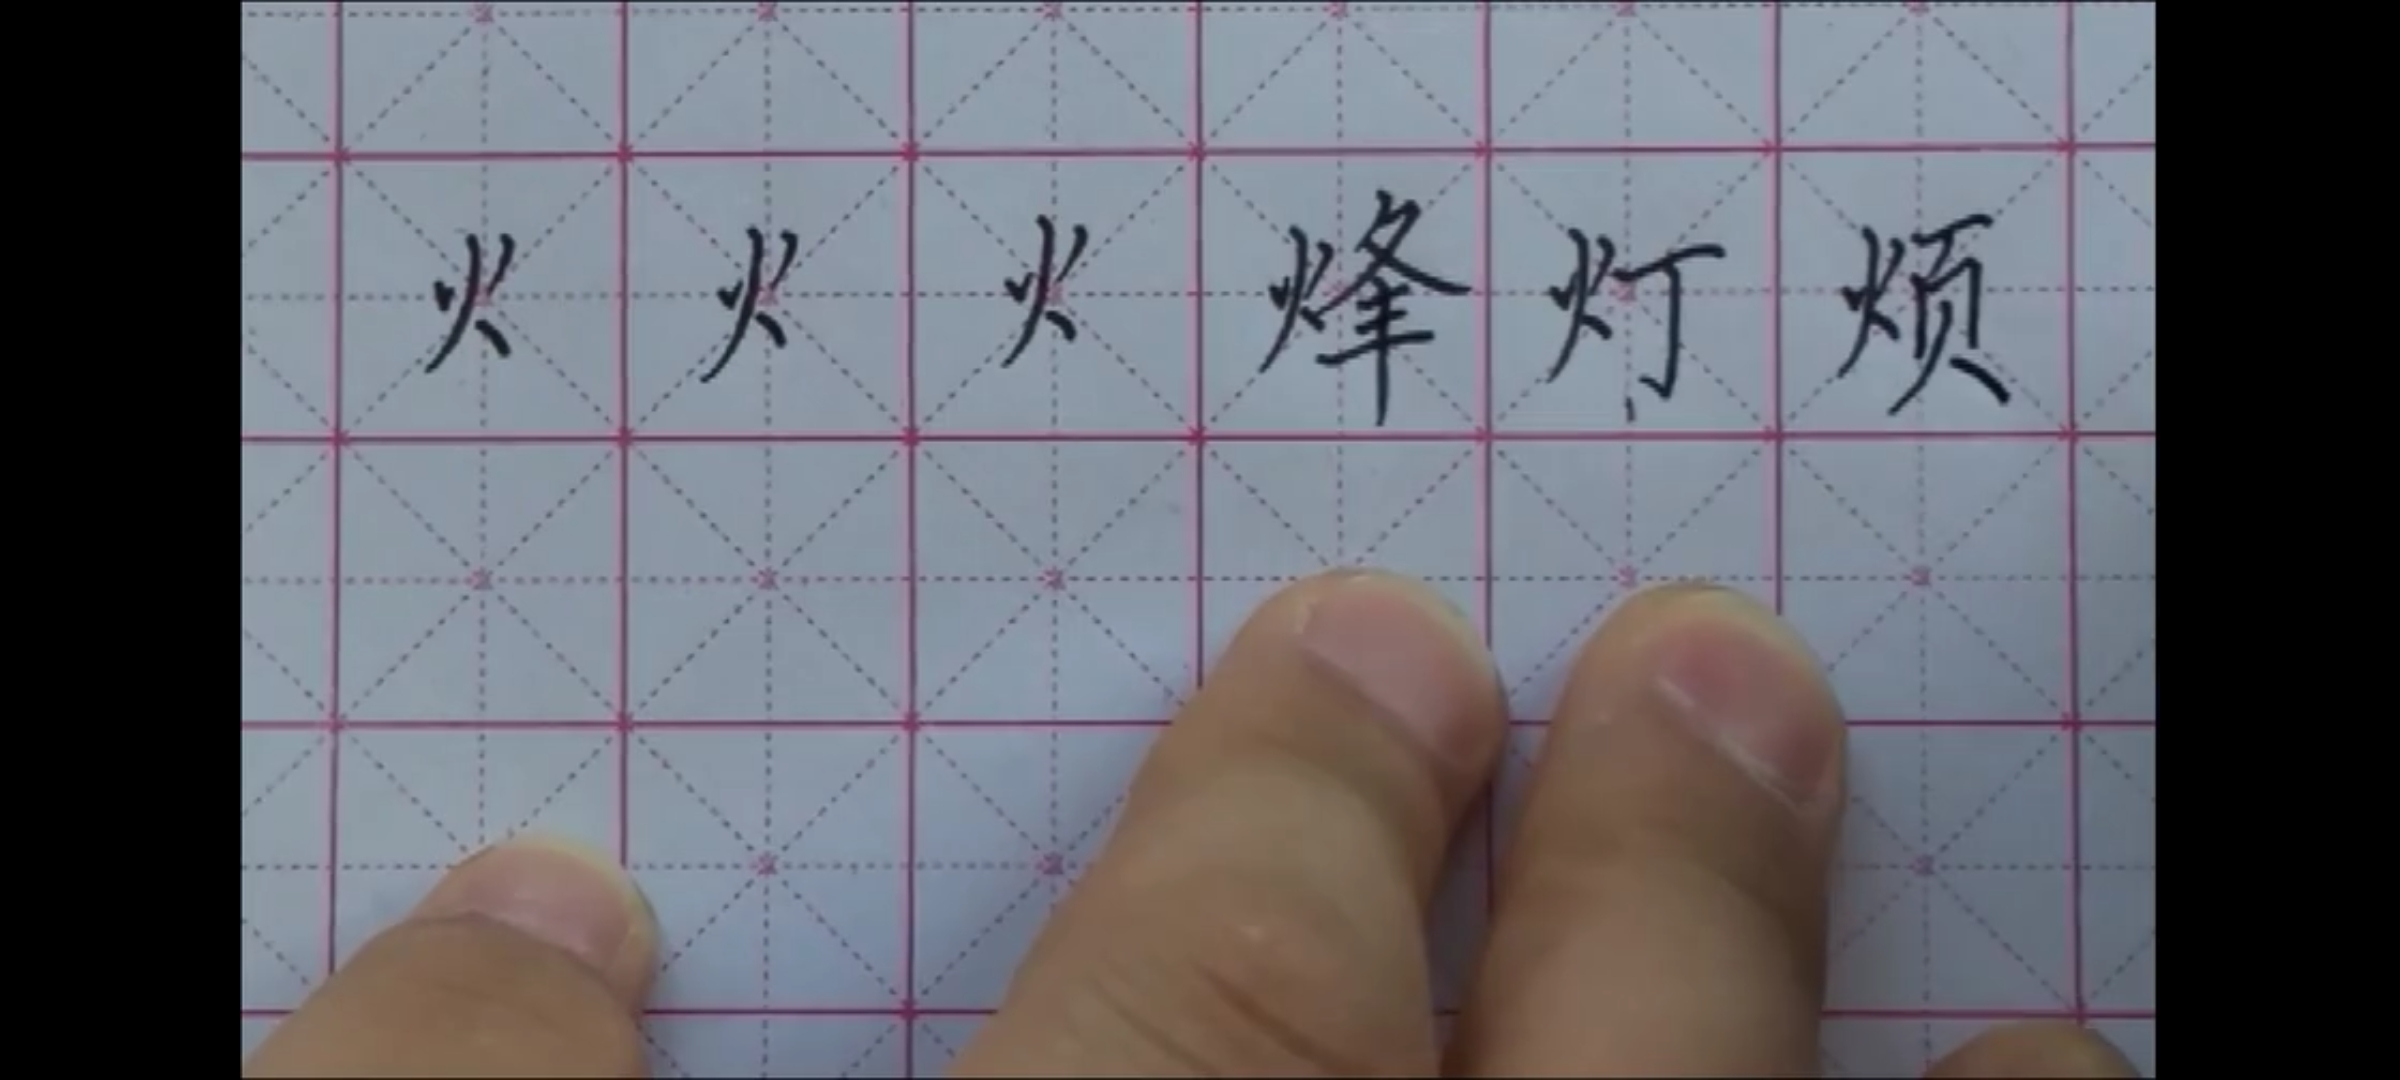 火 火 火 烽 灯 烦